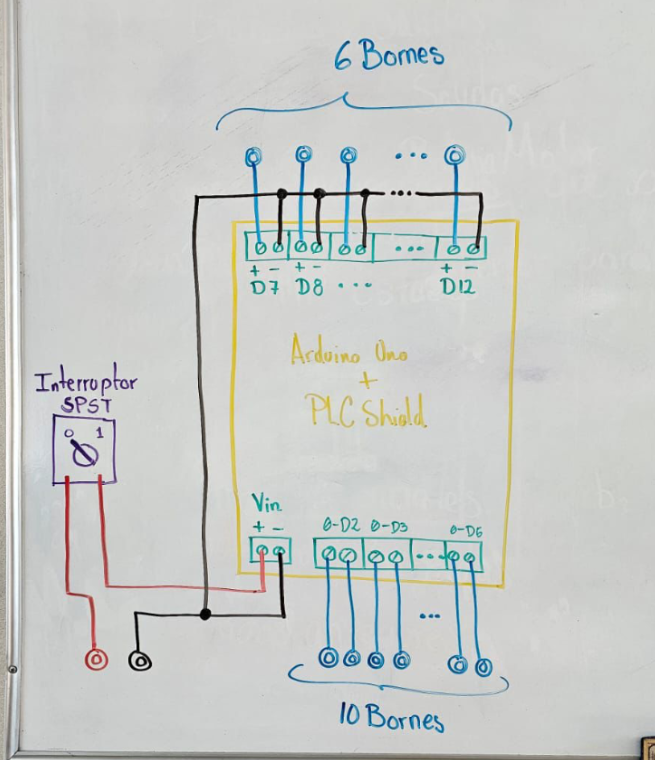 6 Bornes
+ - + - + -
D7 D8 ... D12
Arduino Uno
+
PLC Shield
Interruptor
SPST
0 1
Vin
+ -
0-D2 0-D3 0-D6
...
10 Bornes